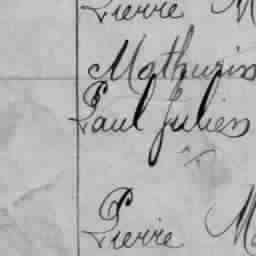 Pierre M
Mathurin
Paul Julien
Pierre Ma